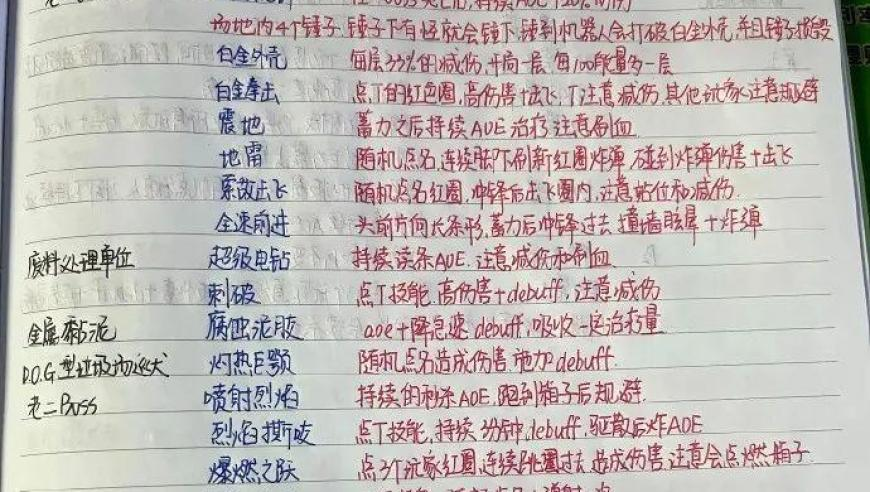 场地内4个锤子,锤子下有怪就会锤下,锤到机器人会打破白金外壳,并且锤子损毁
白金外壳 每层33%的减伤,开局一层,每100能量多一层
白金拳击 点T的红色圈,高伤害+击飞,T注意减伤,其他玩家注意规避
震地 蓄力之后持续AOE 治疗注意刷血
地雷 随机点名,连续脚下刷新红圈炸弹 碰到炸弹伤害+击飞
索敌出飞 随机点名红圈,冲锋后击飞圈内,注意站位和减伤.
全速前进 头前方向长条形,蓄力后冲锋过去 撞墙眩晕+炸弹
废料处理单位 超级电钻 持续读条AOE.注意减伤和刷血
刺破 点T技能.高伤害+debuff,注意减伤
金属黏泥 腐蚀泥胶 aoe+降急速debuff,吸收一定治疗量
D.O.G型垃圾场巡犬 灼热巨颚 随机点名造成伤害.施加debuff.
老二Boss 喷射烈焰 持续的秒杀AOE.跑到箱子后规避.
烈焰撕咬 点T技能,持续3分钟,debuff,驱散后炸AOE
爆燃之跃 点3个玩家红圈,连续跳圈过去 造成伤害.注意会点燃箱子